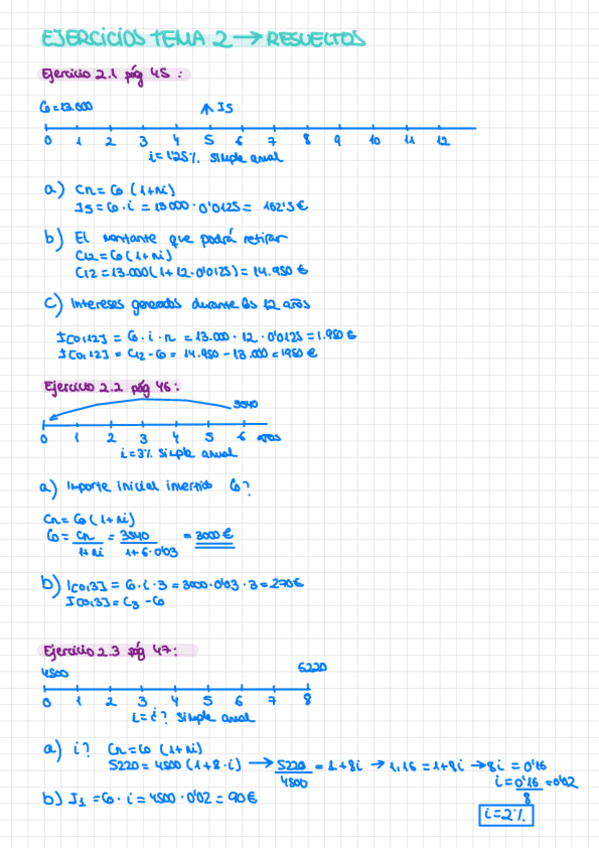 EJERCICIOS TEMA 2 → RESUELTOS
Ejercicio 2.1 pág 45 :
C0 = 13.000
↑ I5
0 1 2 3 4 5 6 7 8 9 10 11 12
i = 1'25%. simple anual
a) Cn = C0 (1+ni)
I5 = C0 · i = 13000 · 0'0125 = 162'5 €
b) El montante que podrá retirar
C12 = C0 (1+ni)
C12 = 13.000 (1+12·0'0125) = 14.950 €
c) Intereses generados durante los 12 años
I[0,12] = C0 · i · n = 13.000 · 12 · 0'0125 = 1.950 €
I[0,12] = C12 - C0 = 14.950 - 13.000 = 1950 €
Ejercicio 2.2 pág 46 :
3540
0 1 2 3 4 5 6 años
i = 3%. simple anual
a) Importe inicial invertido C0?
Cn = C0 (1+ni)
C0 = Cn / 1+ni = 3540 / 1+6·0'03 = 3000 €
b) I[0,3] = C0 · i · 3 = 3000 · 0'03 · 3 = 270 €
I[0,3] = C3 - C0
Ejercicio 2.3 pág 47 :
4500 5220
0 1 2 3 4 5 6 7 8
i = ¿? simple anual
a) i? Cn = C0 (1+ni)
5220 = 4500 (1+8·i) → 5220 / 4500 = 1+8i → 1,16 = 1+8i → 8i = 0'16
i = 0'16 / 8 = 0'02
b) I1 = C0 · i = 4500 · 0'02 = 90 €
i = 2%.